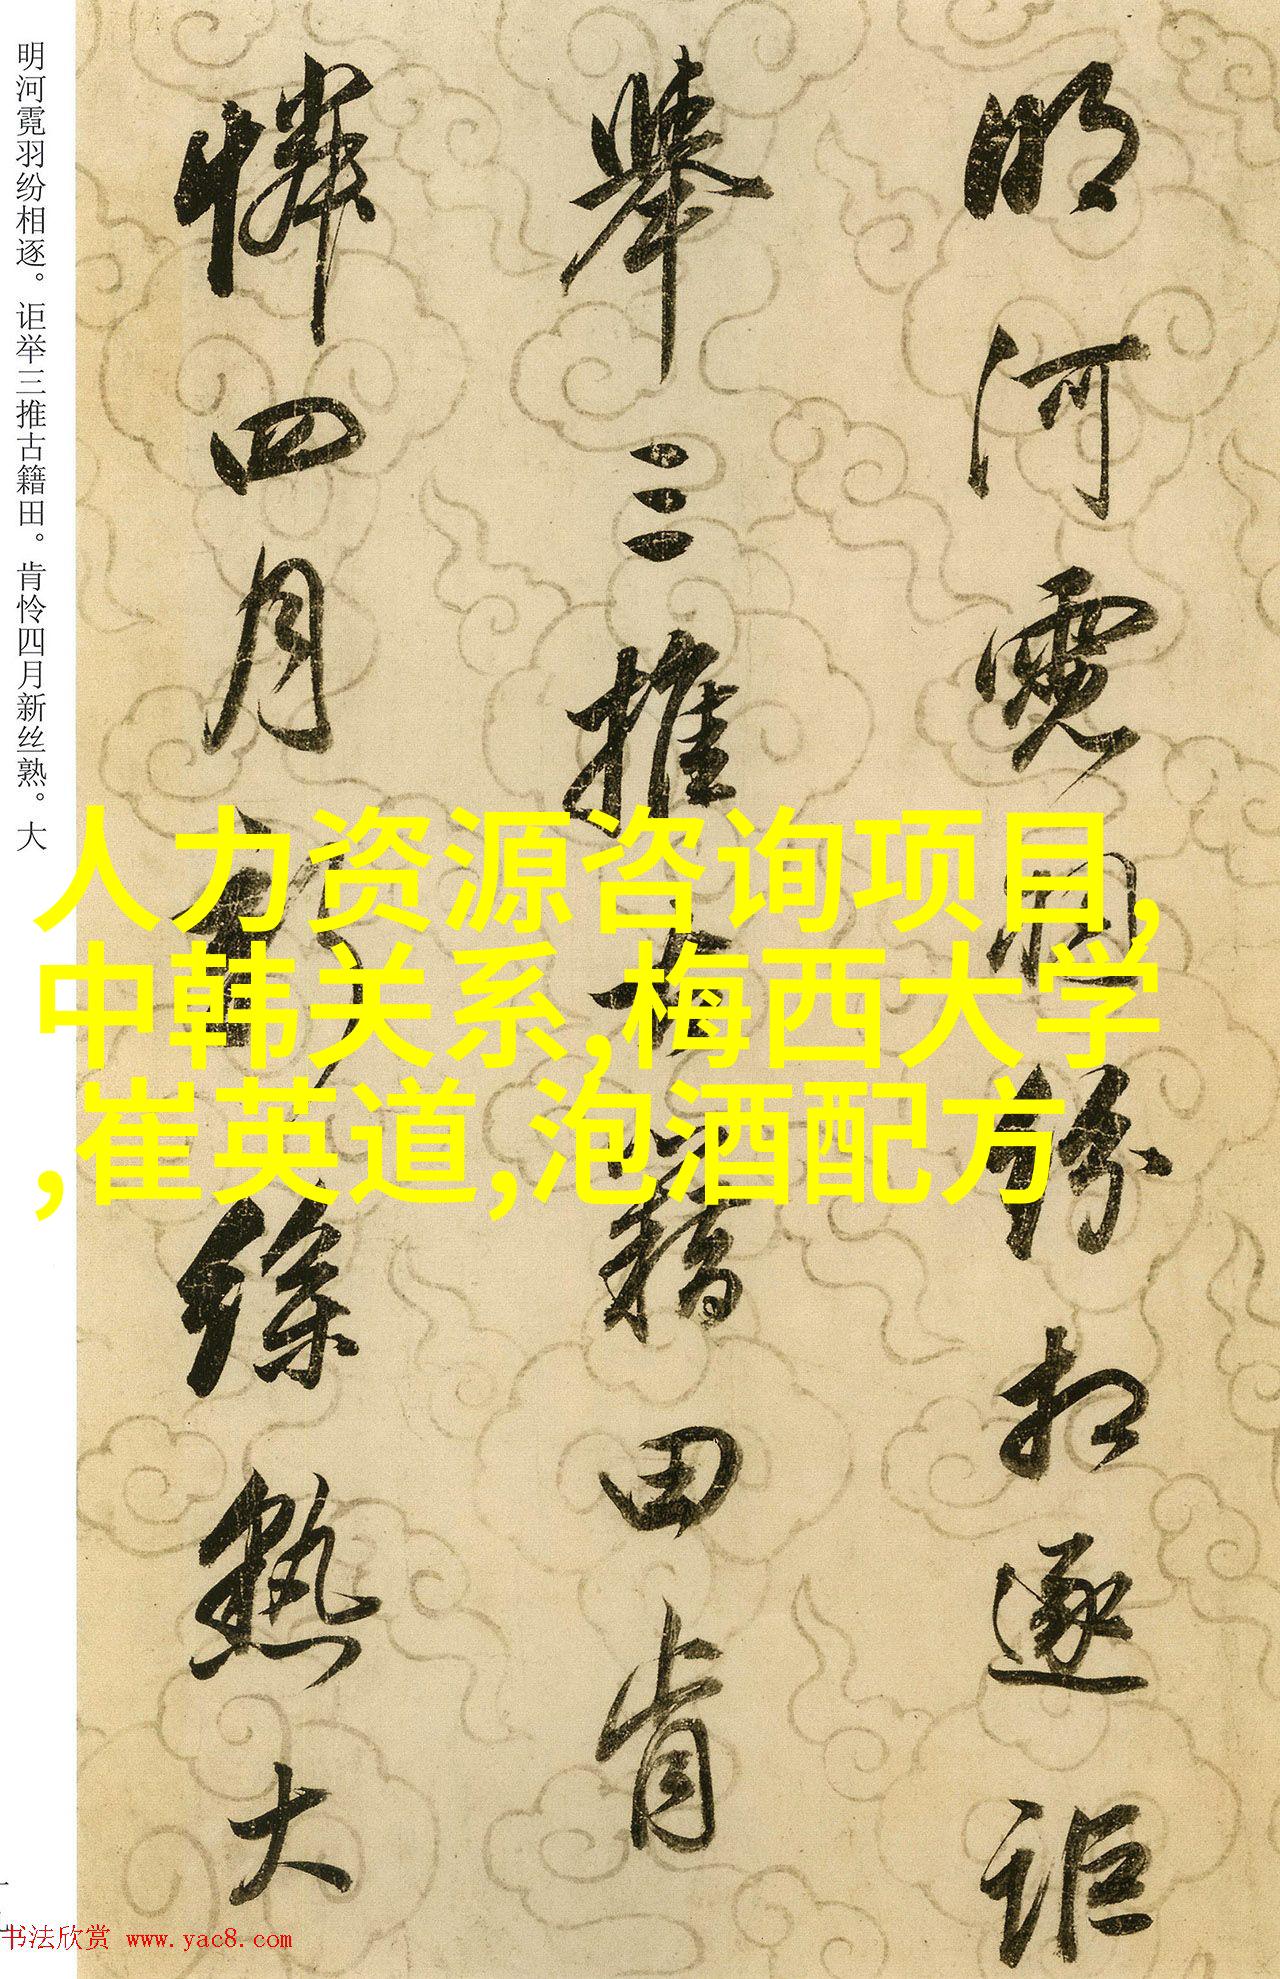 明河霓相纷相逐讵
舉三推古籍田肯
憐四月新絲熟大
明河霓羽纷相逐。讵举三推古籍田。肯怜四月新丝熟。大
人力资源咨询项目,
中韩关系,梅西大学
,崔英道,泡酒配方
书法欣赏 www.yac8.com